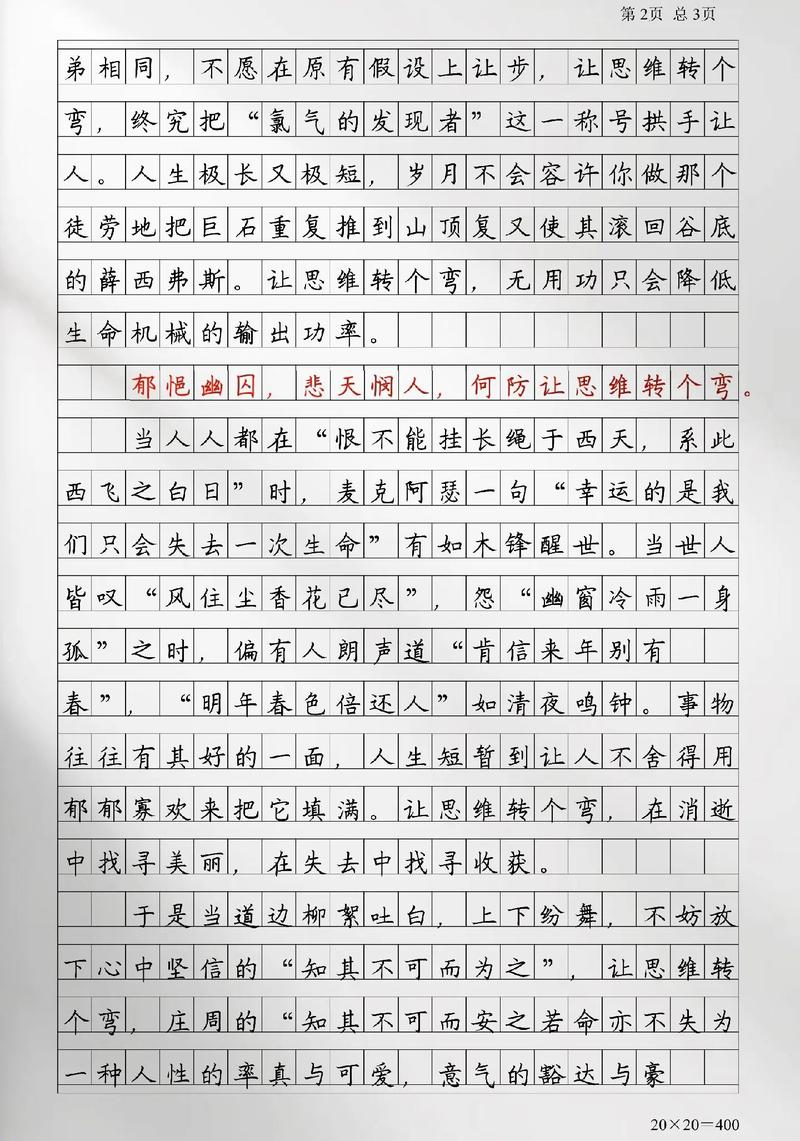 第2页 总3页
弟相同，不愿在原有假设上让步，让思维转个
弯，终究把“氯气的发现者”这一称号拱手让
人。人生极长又极短，岁月不会容许你做那个
徒劳地把巨石重复推到山顶复又使其滚回谷底
的薛西弗斯。让思维转个弯，无用功只会降低
生命机械的输出功率。
郁悒幽囚，悲天悯人，何防让思维转个弯。
当人人都在“恨不能挂长绳于西天，系此
西飞之白日”时，麦克阿瑟一句“幸运的是我
们只会失去一次生命”有如木锋醒世。当世人
皆叹“风住尘香花已尽”，怨“幽窗冷雨一身
孤”之时，偏有人朗声道“肯信来年别有
春”，“明年春色倍还人”如清夜鸣钟。事物
往往有其好的一面，人生短暂到让人不舍得用
郁郁寡欢来把它填满。让思维转个弯，在消逝
中找寻美丽，在失去中找寻收获。
于是当道边柳絮吐白，上下纷舞，不妨放
下心中坚信的“知其不可而为之”，让思维转
个弯，庄周的“知其不可而安之若命亦不失为
一种人性的率真与可爱，意气的豁达与豪
20×20=400